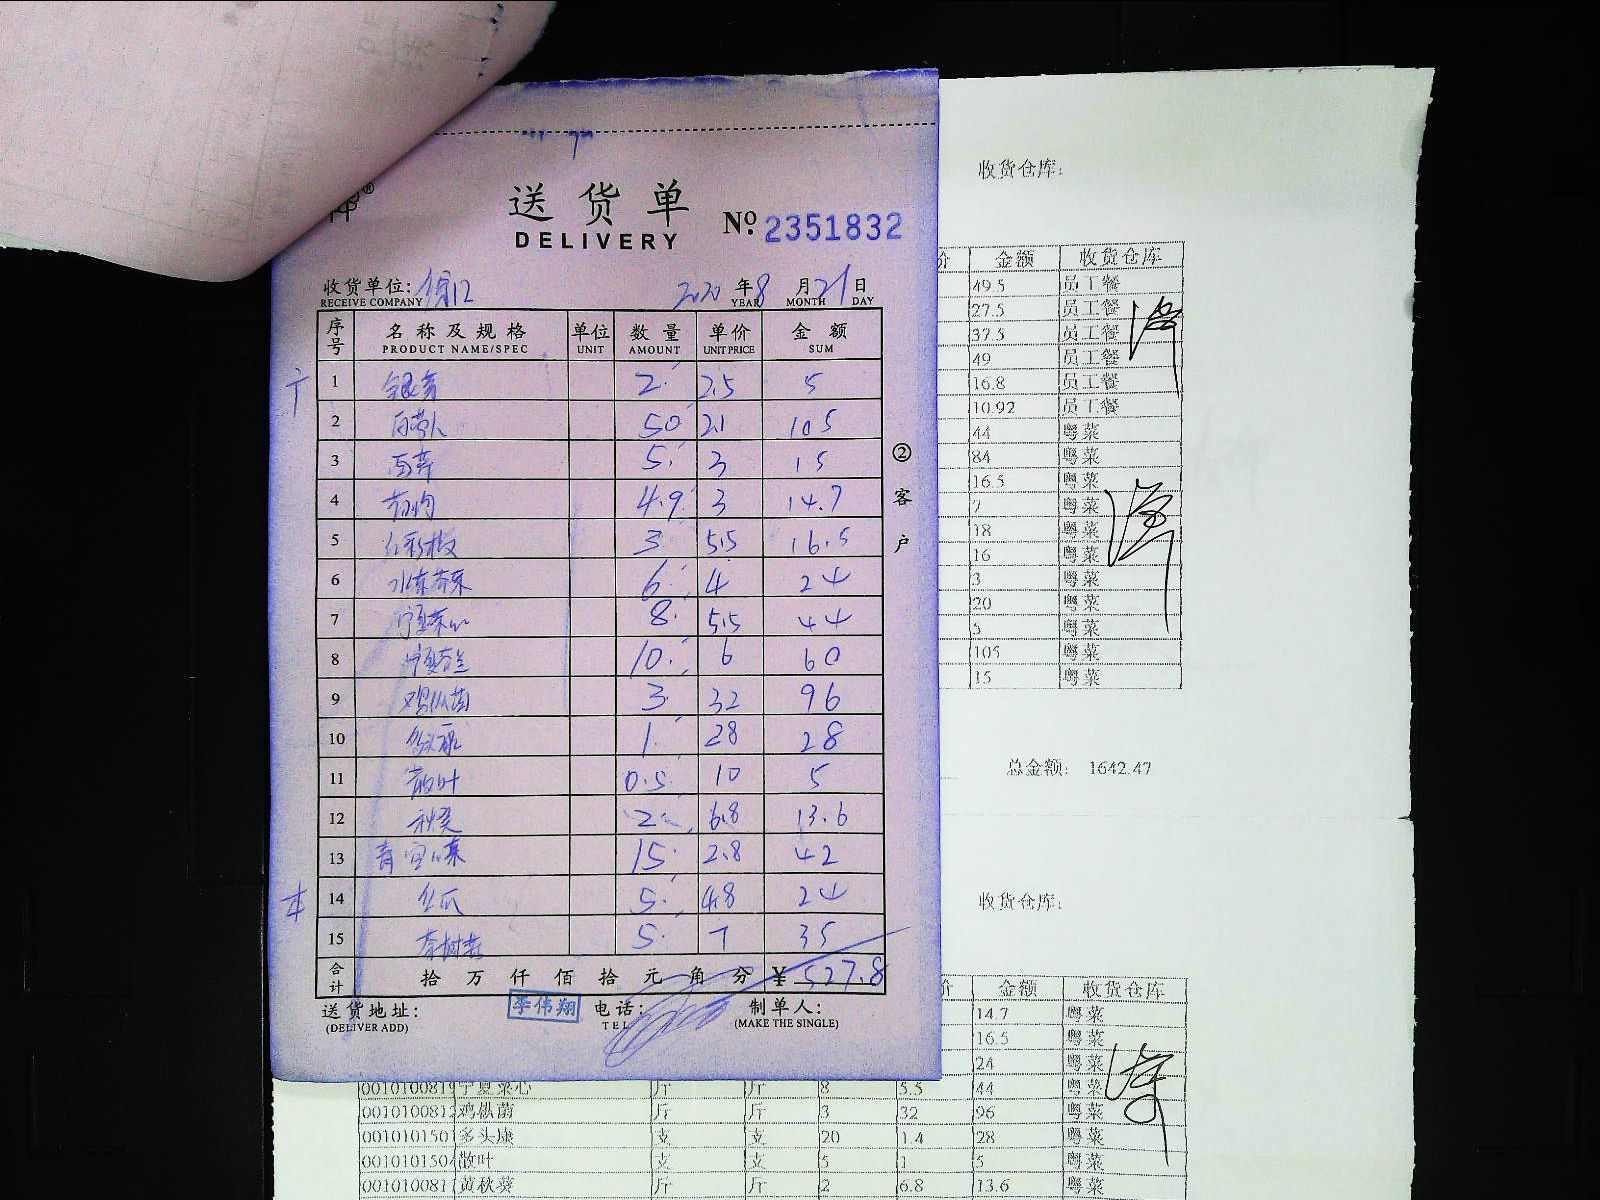 送货单
DELIVERY
№ 2351832
收货单位:
2020 年 8 月 21 日
RECEIVE COMPANY YEAR MONTH DAY
序号 名称及规格 单位 数量 单价 金额
PRODUCT NAME/SPEC UNIT AMOUNT UNIT PRICE SUM
1 银芽 2 2.5 5
2 50 2.1 105
3 西芹 5 3 15
4 4.9 3 14.7
5 红彩椒 3 5.5 16.5
6 水东芥菜 6 4 24
7 宁夏菜心 8 5.5 44
8 宁夏芥兰 10 6 60
9 鸡枞菌 3 32 96
10 1 28 28
11 散叶 0.5 10 5
12 秋葵 2 6.8 13.6
13 15 2.8 42
14 丝瓜 5 4.8 24
15 茶树菇 5 7 35
合计 拾万仟佰拾元角分 ¥ 527.8
送货地址: 李伟翔 电话: 制单人:
(DELIVER ADD) TEL (MAKE THE SINGLE)
②客户
收货仓库:
价 金额 收货仓库
49.5 员工餐
27.5 员工餐
37.5 员工餐
49 员工餐
16.8 员工餐
10.92 员工餐
44 粤菜
84 粤菜
16.5 粤菜
7 粤菜
18 粤菜
16 粤菜
3 粤菜
20 粤菜
5 粤菜
105 粤菜
15 粤菜
总金额: 1642.47
收货仓库:
价 金额 收货仓库
14.7 粤菜
16.5 粤菜
24 粤菜
0010100819 宁夏菜心 斤 斤 8 5.5 44 粤菜
0010100812 鸡枞菌 斤 斤 3 32 96 粤菜
0010101501 多头康 支 支 20 1.4 28 粤菜
0010101504 散叶 支 支 5 1 5 粤菜
0010100811 黄秋葵 斤 斤 2 6.8 13.6 粤菜